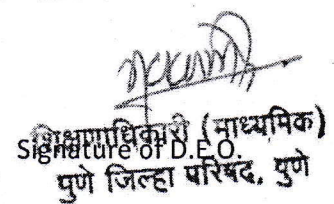 शिक्षणाधिकारी (माध्यमिक)
Signature of D.E.O.
पुणे जिल्हा परिषद, पुणे